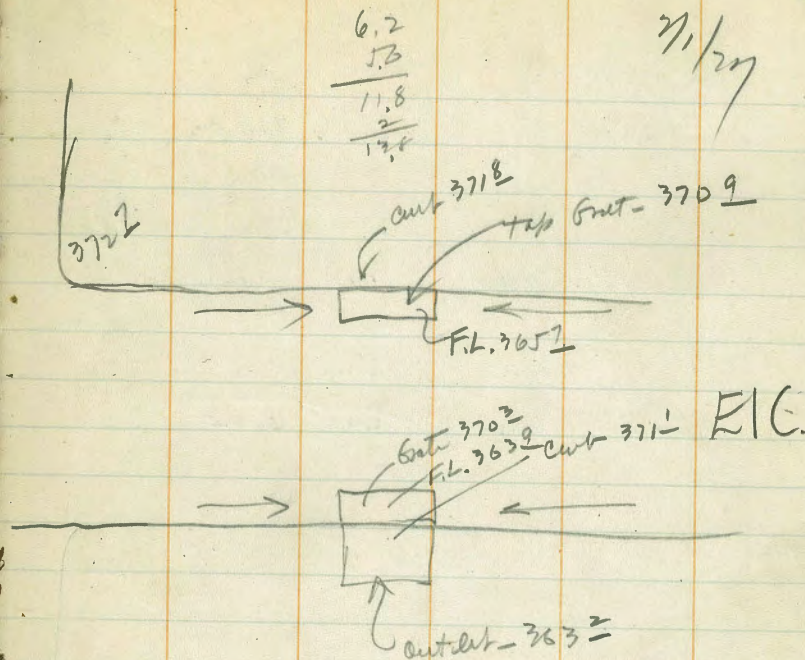 6.2
5.6
11.8
2
13.8
2/1/27
Curb 371 8
top Grate - 370 9
372 7
F.L. 365 7
Grate 370 3
F.L. 363 9
Curb 371 1
E1C.
outlet - 363 2